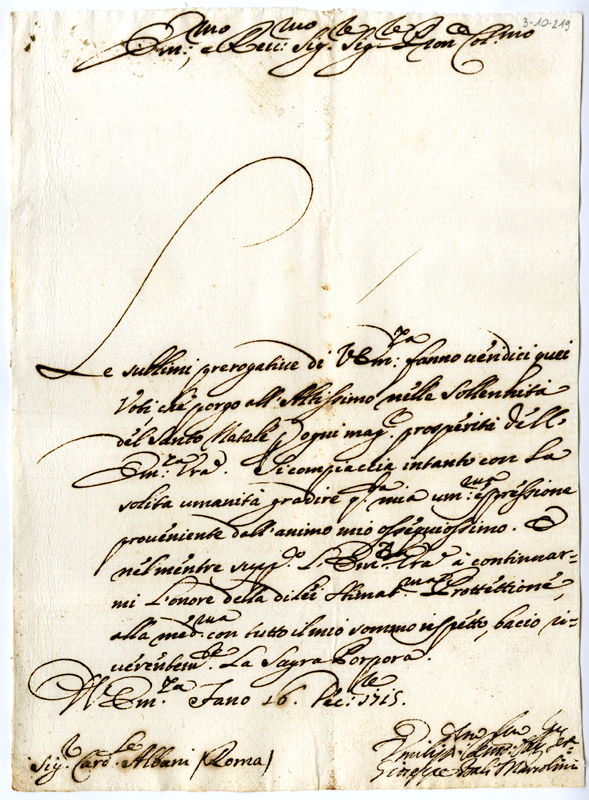 3-10-219
Em.mo e Rev.mo Sig.re Sig.re Pron.e Col.mo
Le sublimi prerogative di V Em.za fanno veridici quei
Voti che porgo all'Altissimo nella Sollennità
del Santo Natale p ogni mag.e prosperità dell'
Em.za Vra. Si compiaccia intanto con la
solita umanità gradire q.ta mia um.ma espressione
proveniente dall'animo mio ossequiosissimo. E
nel mentre supp.co L'Em.za Vra à continuar-
mi L'onore della di lei stimat.ma Protettione,
alla med.ma con tutto il mio sommo rispetto, bacio ri-
verentem.te La Sagra Porpora.
D V Em.za Fano 16. Dec.bre 1715.
Sig.r Card.le Albani (Roma)
Giuseppe Marcolini